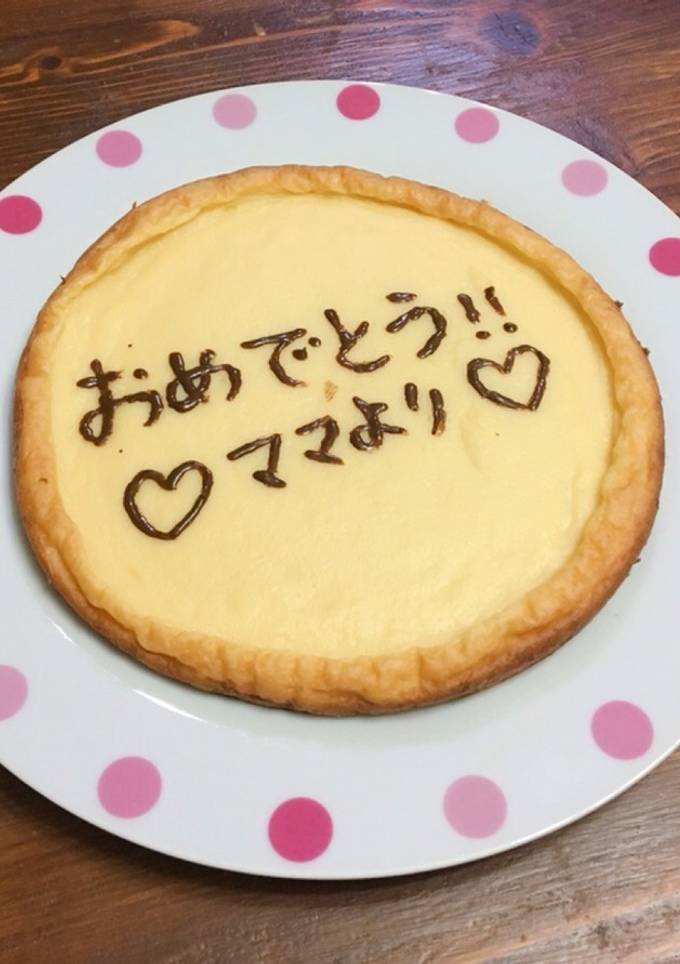 おめでとう!!
♡ママより♡